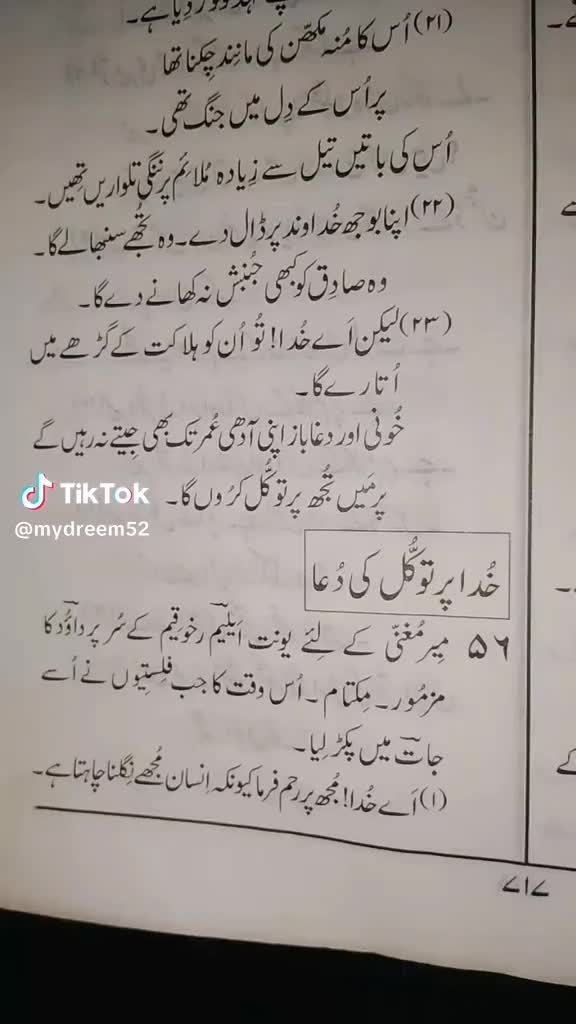 دیا ہے۔
(۲۱) اُس کا مُنہ مکھّن کی مانِند چِکنا تھا
پر اُس کے دِل میں جنگ تھی۔
اُس کی باتیں تیل سے زِیادہ مُلائِم پر ننگی تلواریں تھِیں۔
(۲۲) اپنا بوجھ خُداوند پر ڈال دے۔ وہ تُجھے سنبھالے گا۔
وہ صادِق کو کبھی جُنبِش نہ کھانے دے گا۔
(۲۳) لیکن اَے خُدا! تُو اُن کو ہلاکت کے گڑھے میں
اُتارے گا۔
خُونی اور دغاباز اپنی آدھی عُمر تک بھی جِیتے نہ رہیں گے
پر مَیں تُجھ پر توکُّل کرُوں گا۔
TikTok
@mydreem52
خُدا پر توکُّل کی دُعا
۵۶ مِیر مُغنّی کے لِئے یونت اَیلیم رخوقیم کے سُر پر داؤُد کا
مزمُور۔ مِکتام۔ اُس وقت کا جب فلِستِیوں نے اُسے
جات میں پکڑ لِیا۔
(۱) اَے خُدا! مُجھ پر رحم فرما کیونکہ اِنسان مُجھے نِگلنا چاہتا ہے۔
۷۱۷